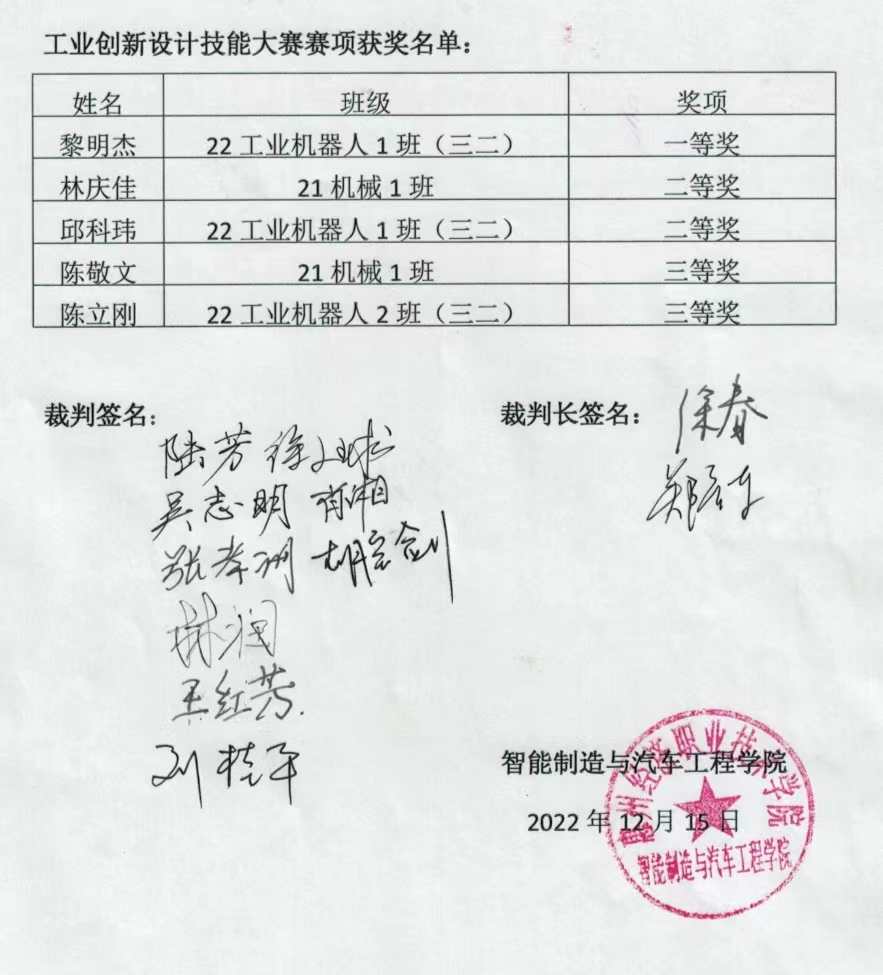 工业创新设计技能大赛赛项获奖名单：
姓名 班级 奖项
黎明杰 22 工业机器人 1 班（三二） 一等奖
林庆佳 21 机械 1 班 二等奖
邱科玮 22 工业机器人 1 班（三二） 二等奖
陈敬文 21 机械 1 班 三等奖
陈立刚 22 工业机器人 2 班（三二） 三等奖
裁判签名： 裁判长签名： 徐春
陆芳
吴志明
张孝洲
林润
王红芳
刘桂平
智能制造与汽车工程学院
2022 年 12 月 15 日
州经济职业技术学院
智能制造与汽车工程学院